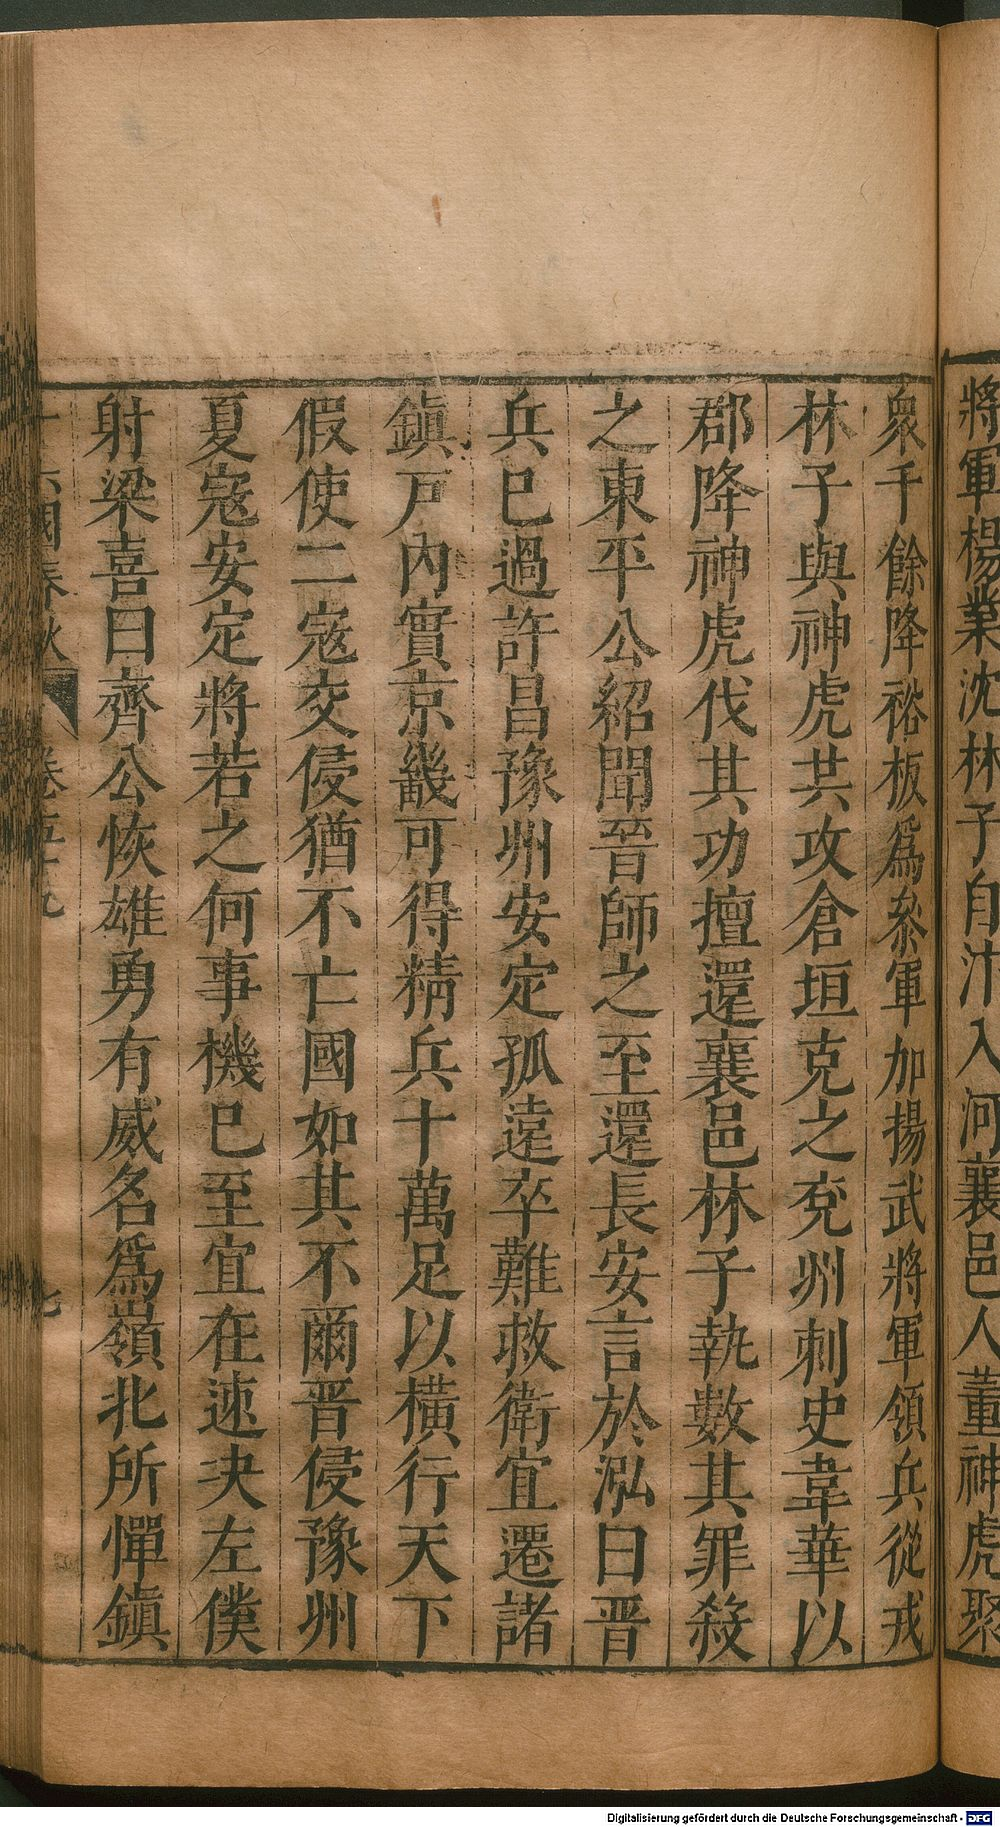 將軍楊業沈林子自汴入河襄邑人董神虎聚
衆千餘降裕板爲叅軍加揚武將軍領兵從戎
林子與神虎共攻倉垣克之兖州刺史韋華以
郡降神虎伐其功擅還襄邑林子執數其罪殺
之東平公紹聞晉師之至還長安言於泓曰晋
兵巳過許昌豫州安定孤遠卒難救衛宜遷諸
鎮戸内實京畿可得精兵十萬足以橫行天下
假使二寇交侵猶不亡國如其不爾晋侵豫州
夏寇安定將若之何事機巳至宜在速决左僕
射梁喜曰齊公恢雄勇有威名爲嶺北所憚鎮
十六國春秋 卷五十九 七
Digitalisierung gefördert durch die Deutsche Forschungsgemeinschaft - DFG